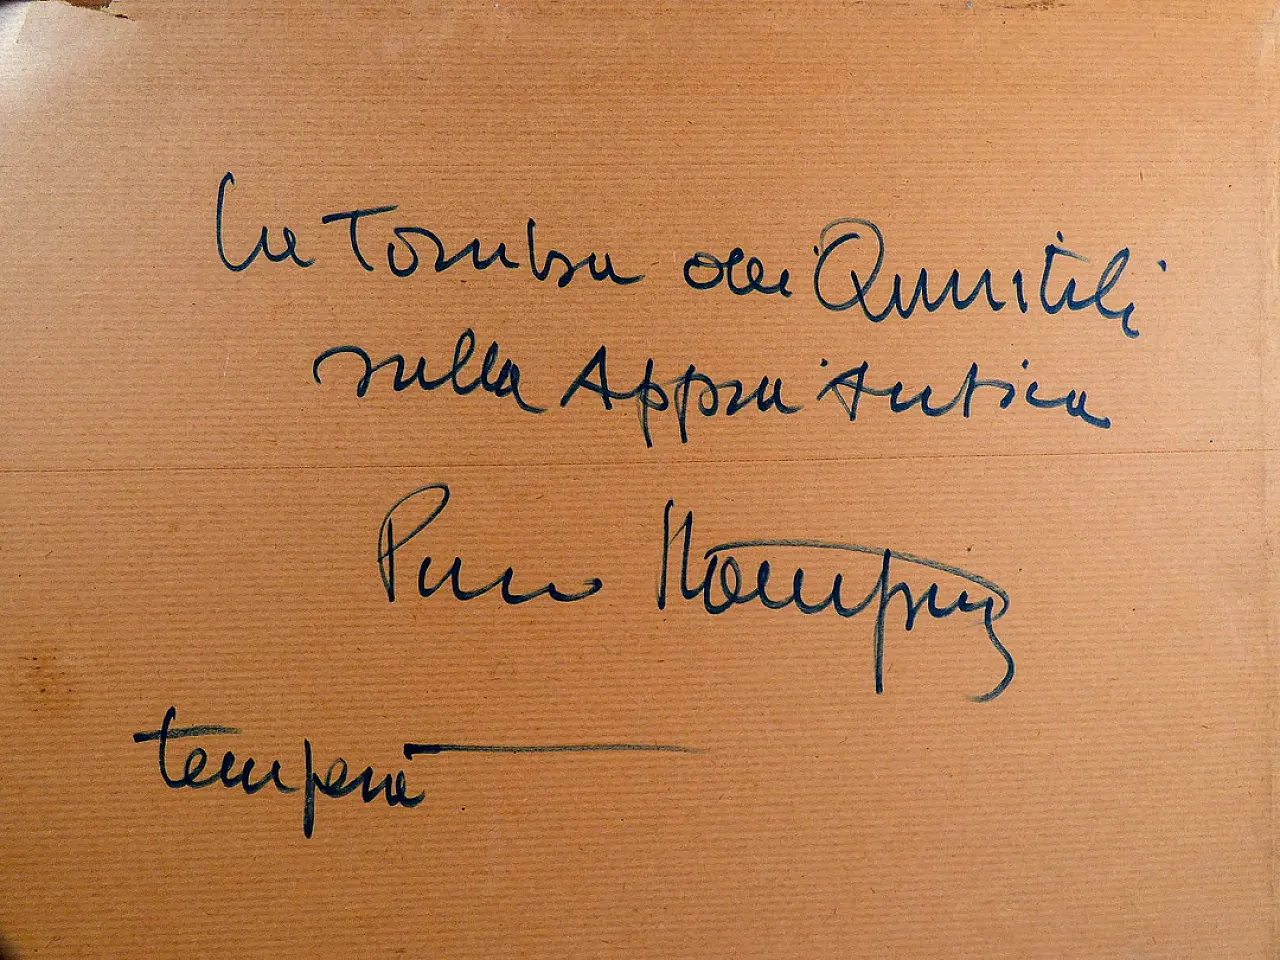 La Tomba dei Quintili
sulla Appia Antica
Pino
tempera